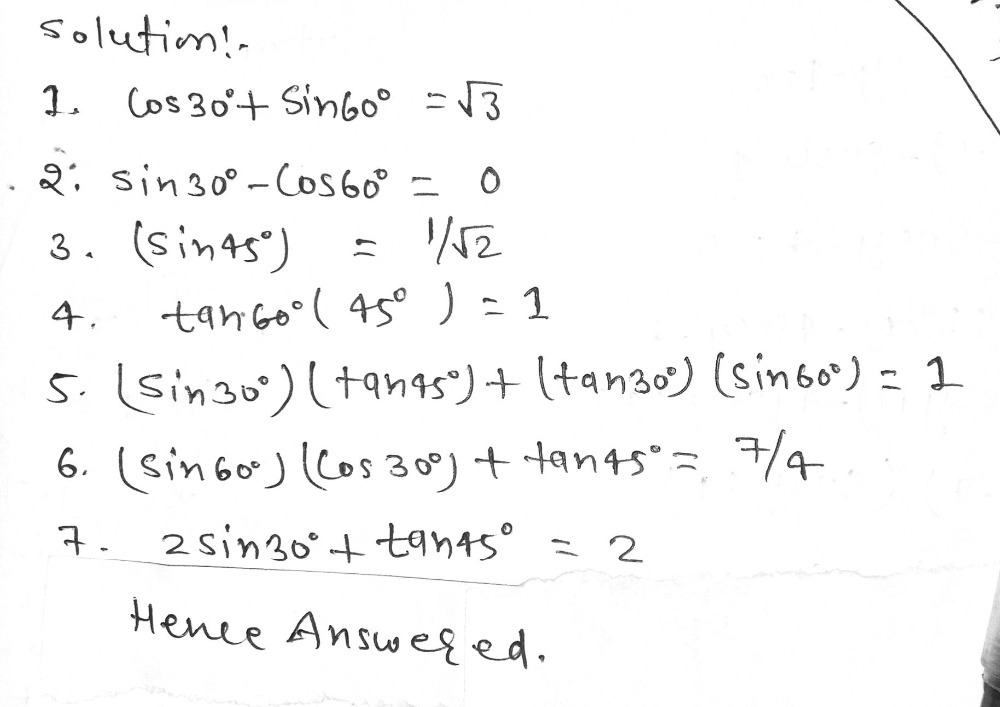 Solution:-
1. Cos30°+ Sin60° = √3
2. sin30° - Cos60° = 0
3. (Sin45°) = 1/√2
4. tan60° ( 45° ) = 1
5. (Sin30°) (tan45°) + (tan30°) (Sin60°) = 1
6. (Sin60°) (Cos 30°) + tan45° = 7/4
7. 2 sin30° + tan45° = 2
Hence Answered.